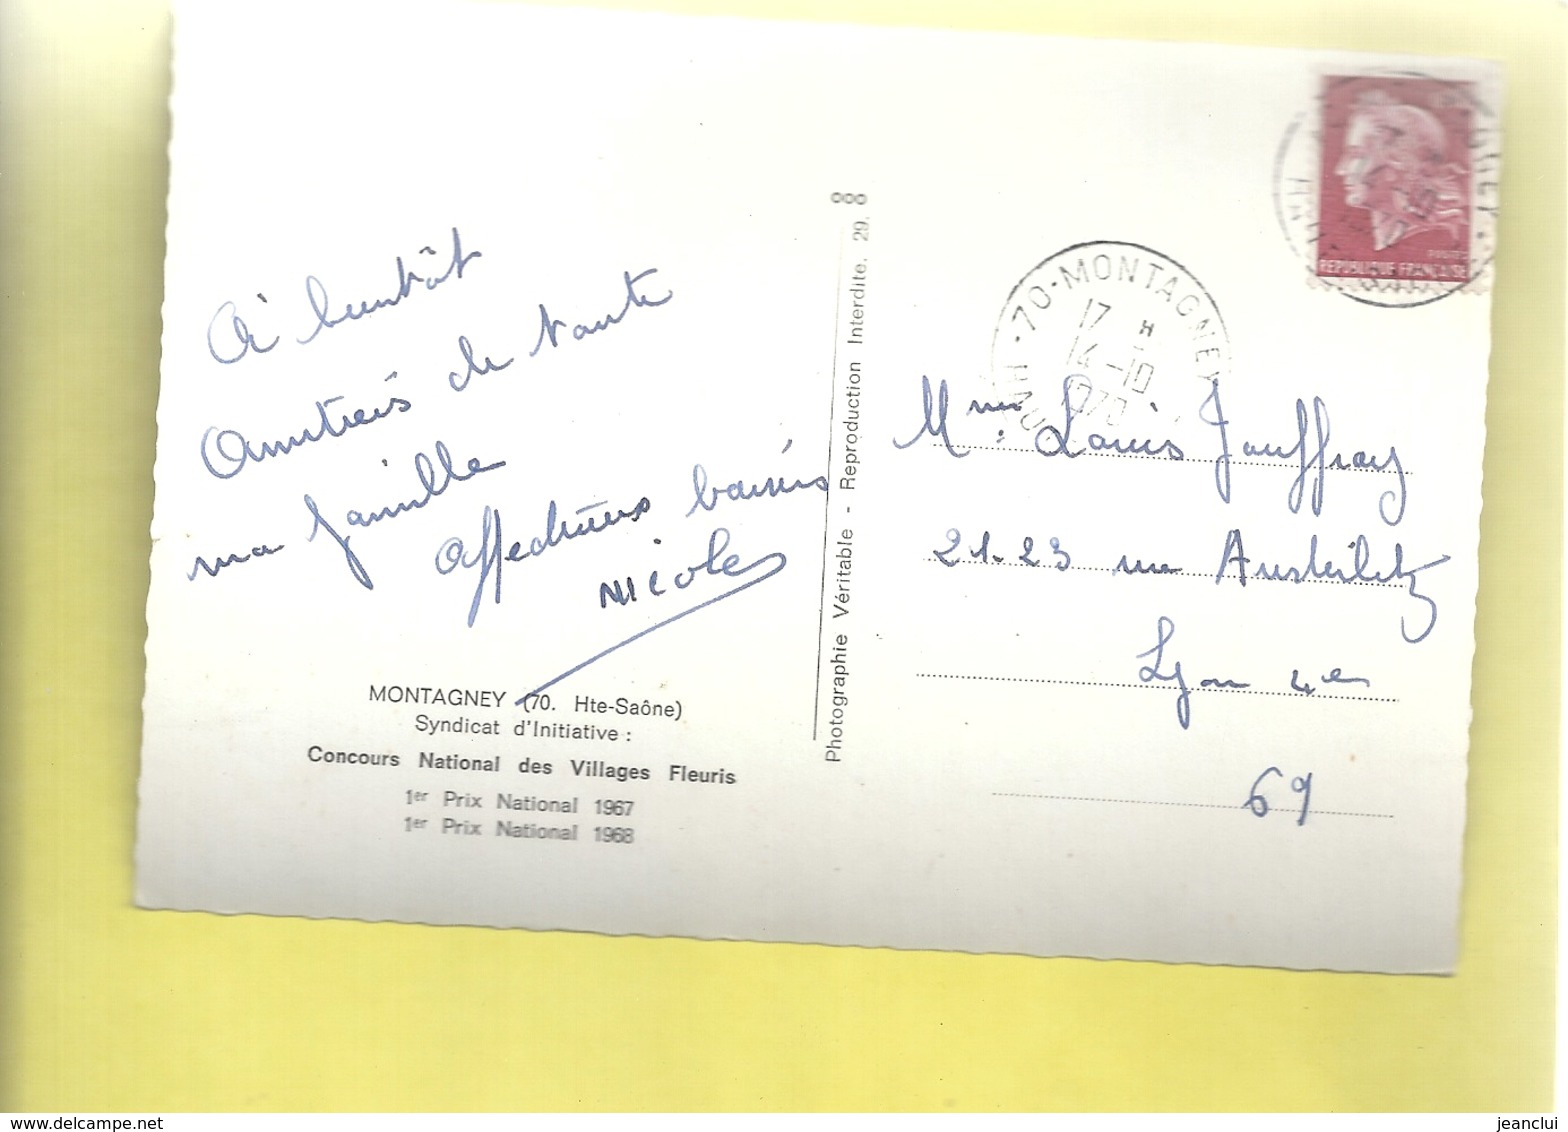 À bientôt
Amitiés de toute
ma famille
Affectueux baisers
Nicole
MONTAGNEY (70. Hte-Saône)
Syndicat d'Initiative :
Concours National des Villages Fleuris
1er Prix National 1967
1er Prix National 1968
Photographie Véritable - Reproduction Interdite. 29.
70-MONTAGNEY
17 H
14-10
1970
POSTES
REPUBLIQUE FRANÇAISE
Mme Louis Jouffray
21-23 rue Austerlitz
Lyon 4e
69
jeanclui